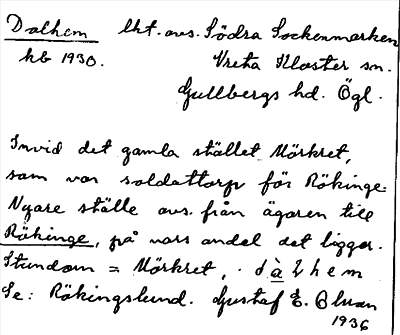 Dalhem lht. avs. Södra Sockenmarken
kb 1930. Vreta Kloster sn.
Gullbergs hd. Ögl.
Invid det gamla stället Mörkret,
som var soldattorp för Rökinge.
Nyare ställe avs. från ägaren till
Rökinge, på vars andel det ligger.
Stundom = Mörkret, . dàlhem
Se: Rökingslund. Gustaf E. Olson
1936